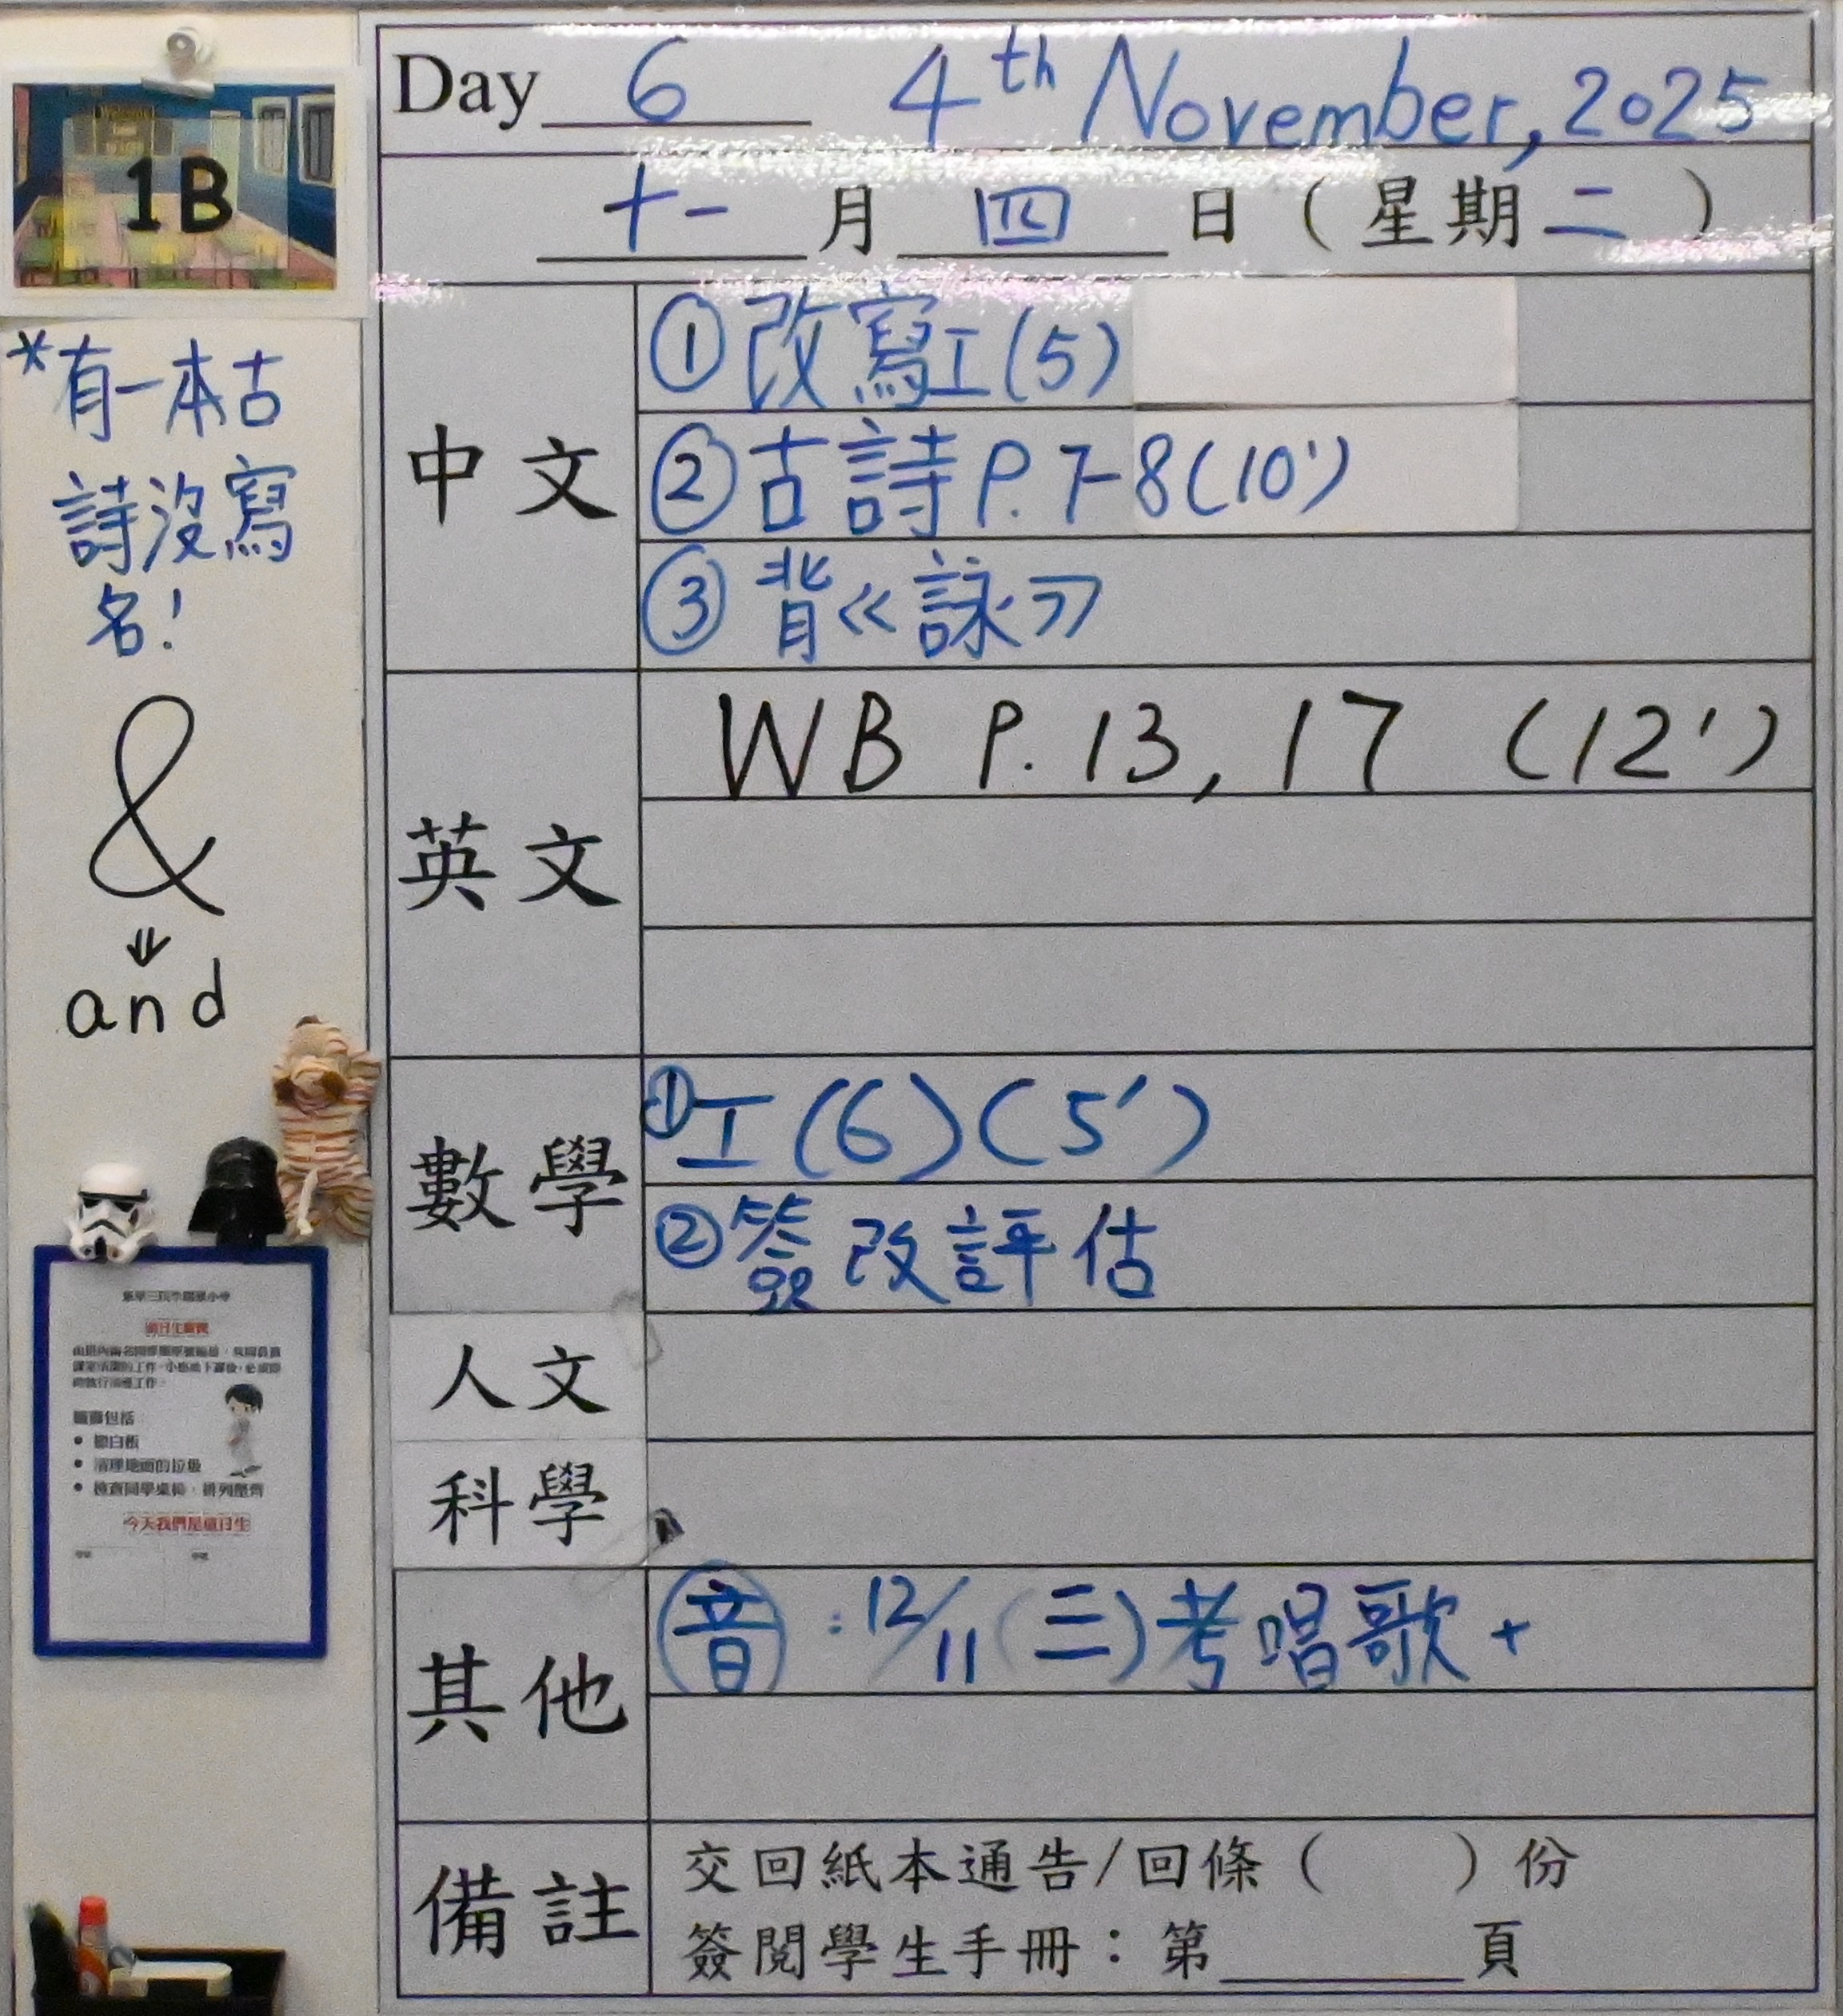 1B
*有一本古
詩沒寫
名!
&
⇓
and
Day 6 4th November, 2025
十一月四日(星期二)
中文
①改寫工(5)
②古詩P.7-8(10')
③背《詠》
英文
WB P.13, 17 (12')
數學
①工(6)(5')
②簽改評估
人文
科學
其他
音:12/11(三)考唱歌+
備註
交回紙本通告/回條( )份
簽閱學生手冊:第______頁
值日生職責
職責包括
• 清理地面的垃圾
• 檢查同學桌椅,排列整齊
今天我們是值日生